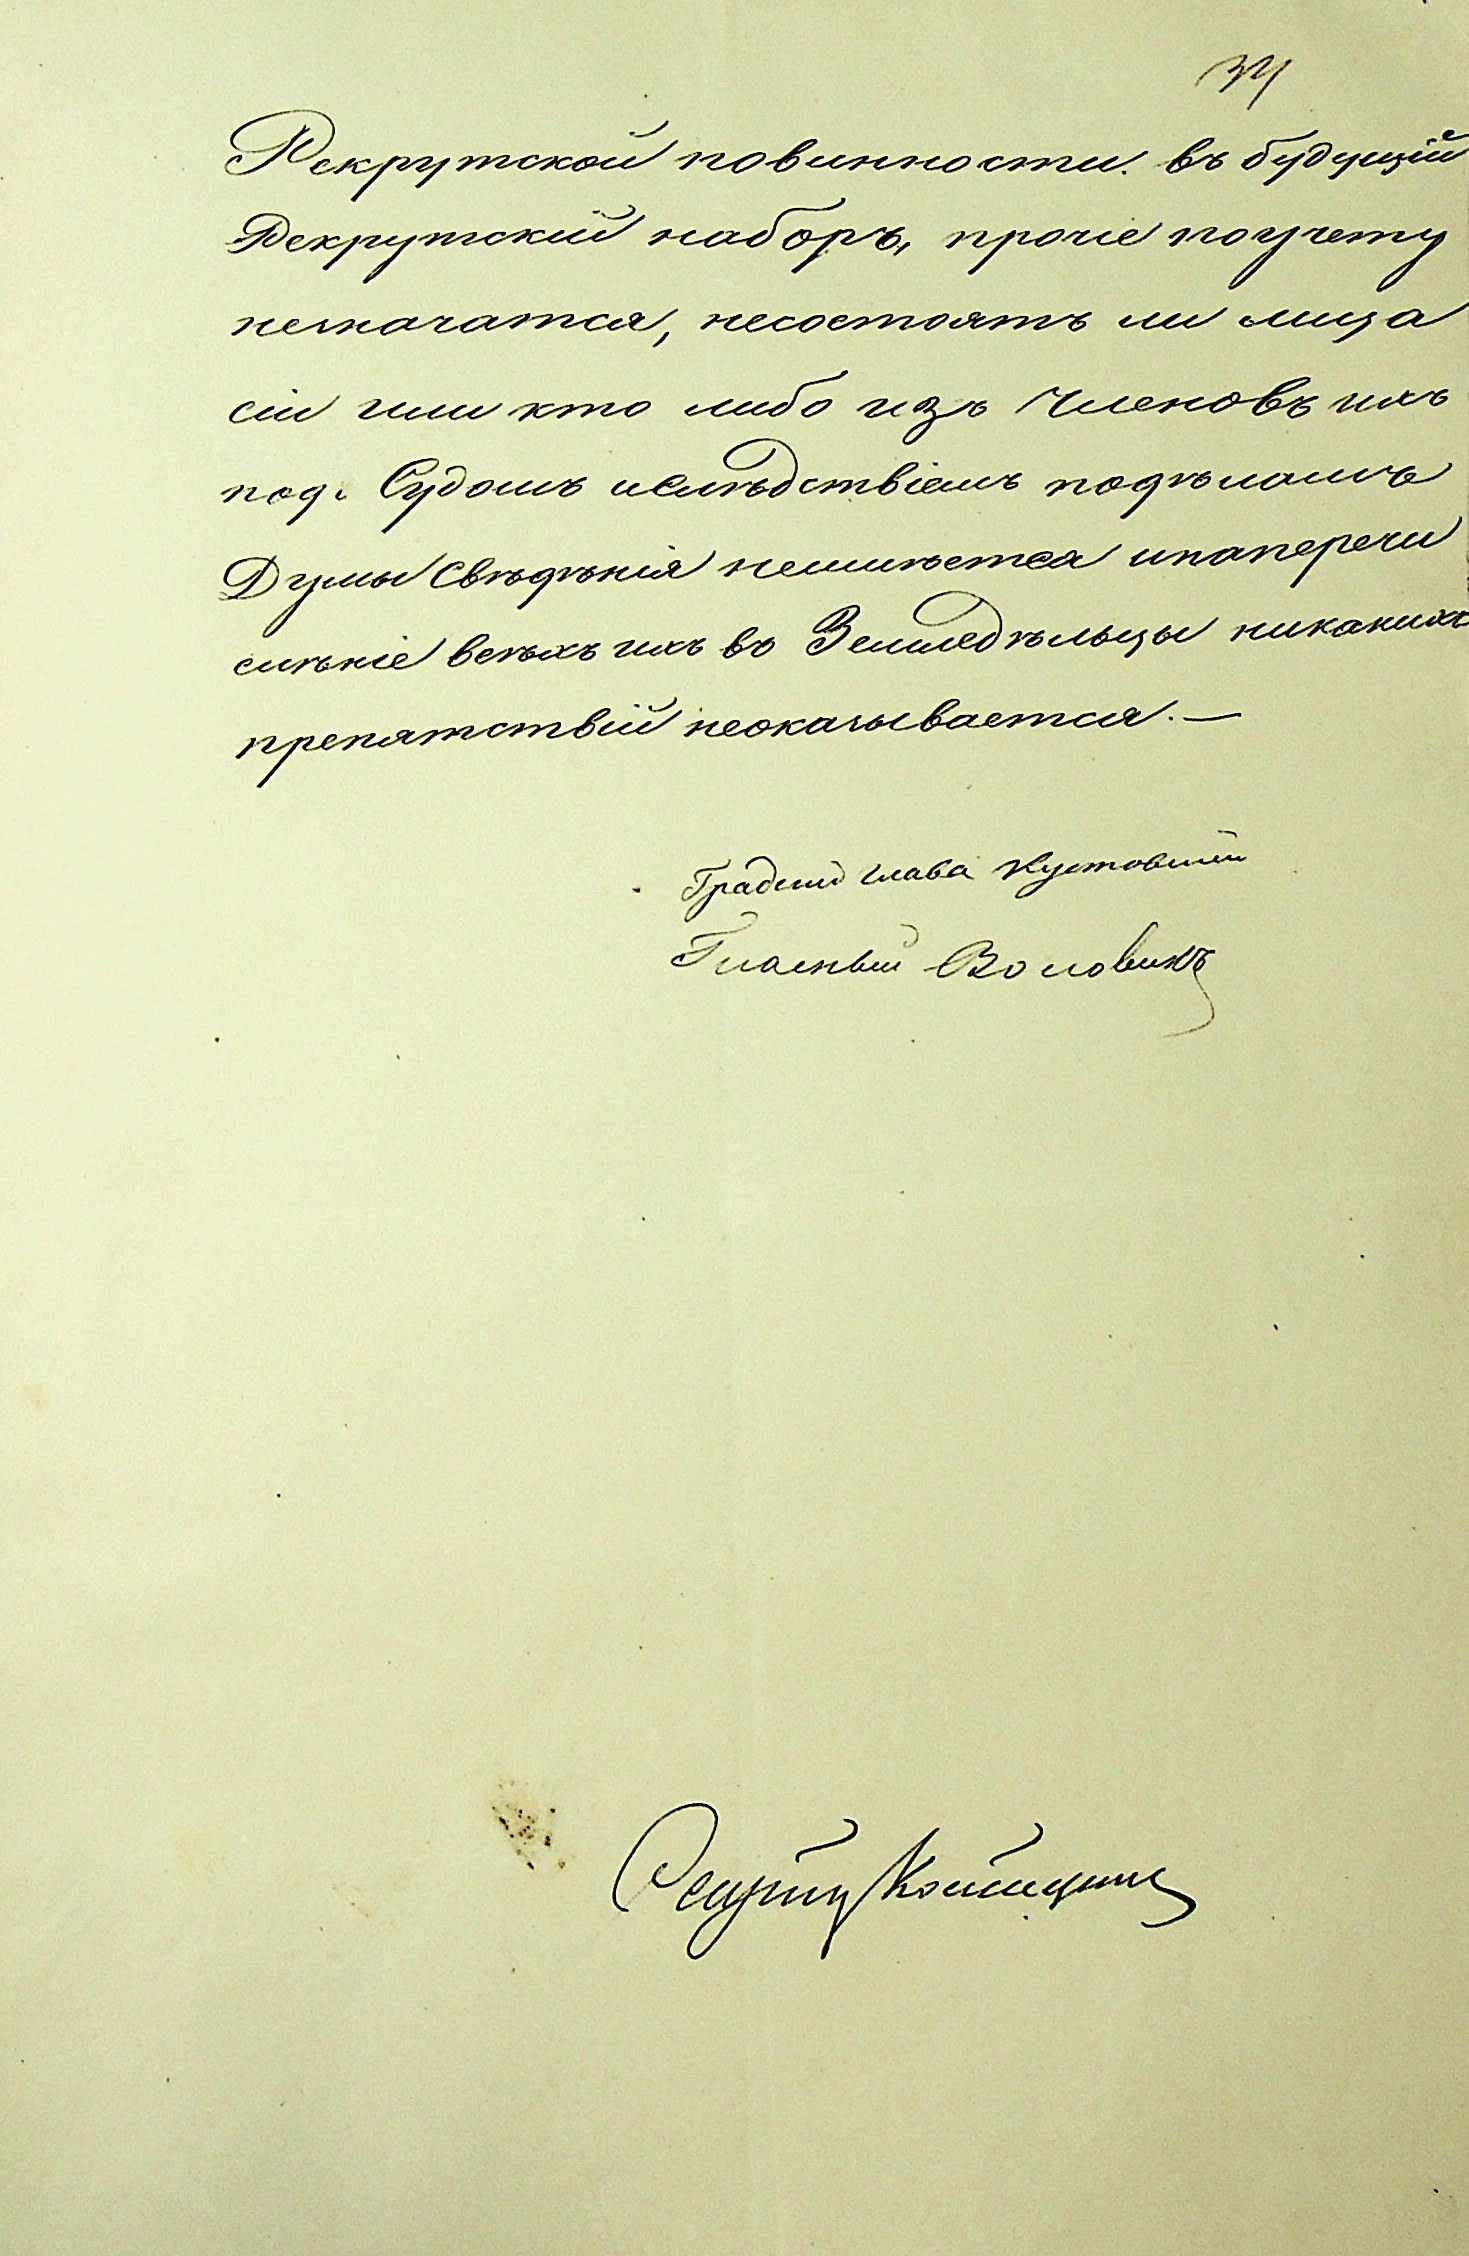 34
Рекрутской повинности. въ будущій
Рекрутскій наборъ, прочіе поучету
незначатся, несостоятъ ли лица
сіи или кто либо изъ Членовъ ихъ
под. Судомъ иСлѣдствіемъ подѣламъ
Думы Свѣдѣнія неимѣется инаперечи
слѣніе всѣхъ ихъ во Земледѣльцы никакихъ
препятствій неоказывается. —
Градскій глава Кустовскій
Гласный Воловикъ